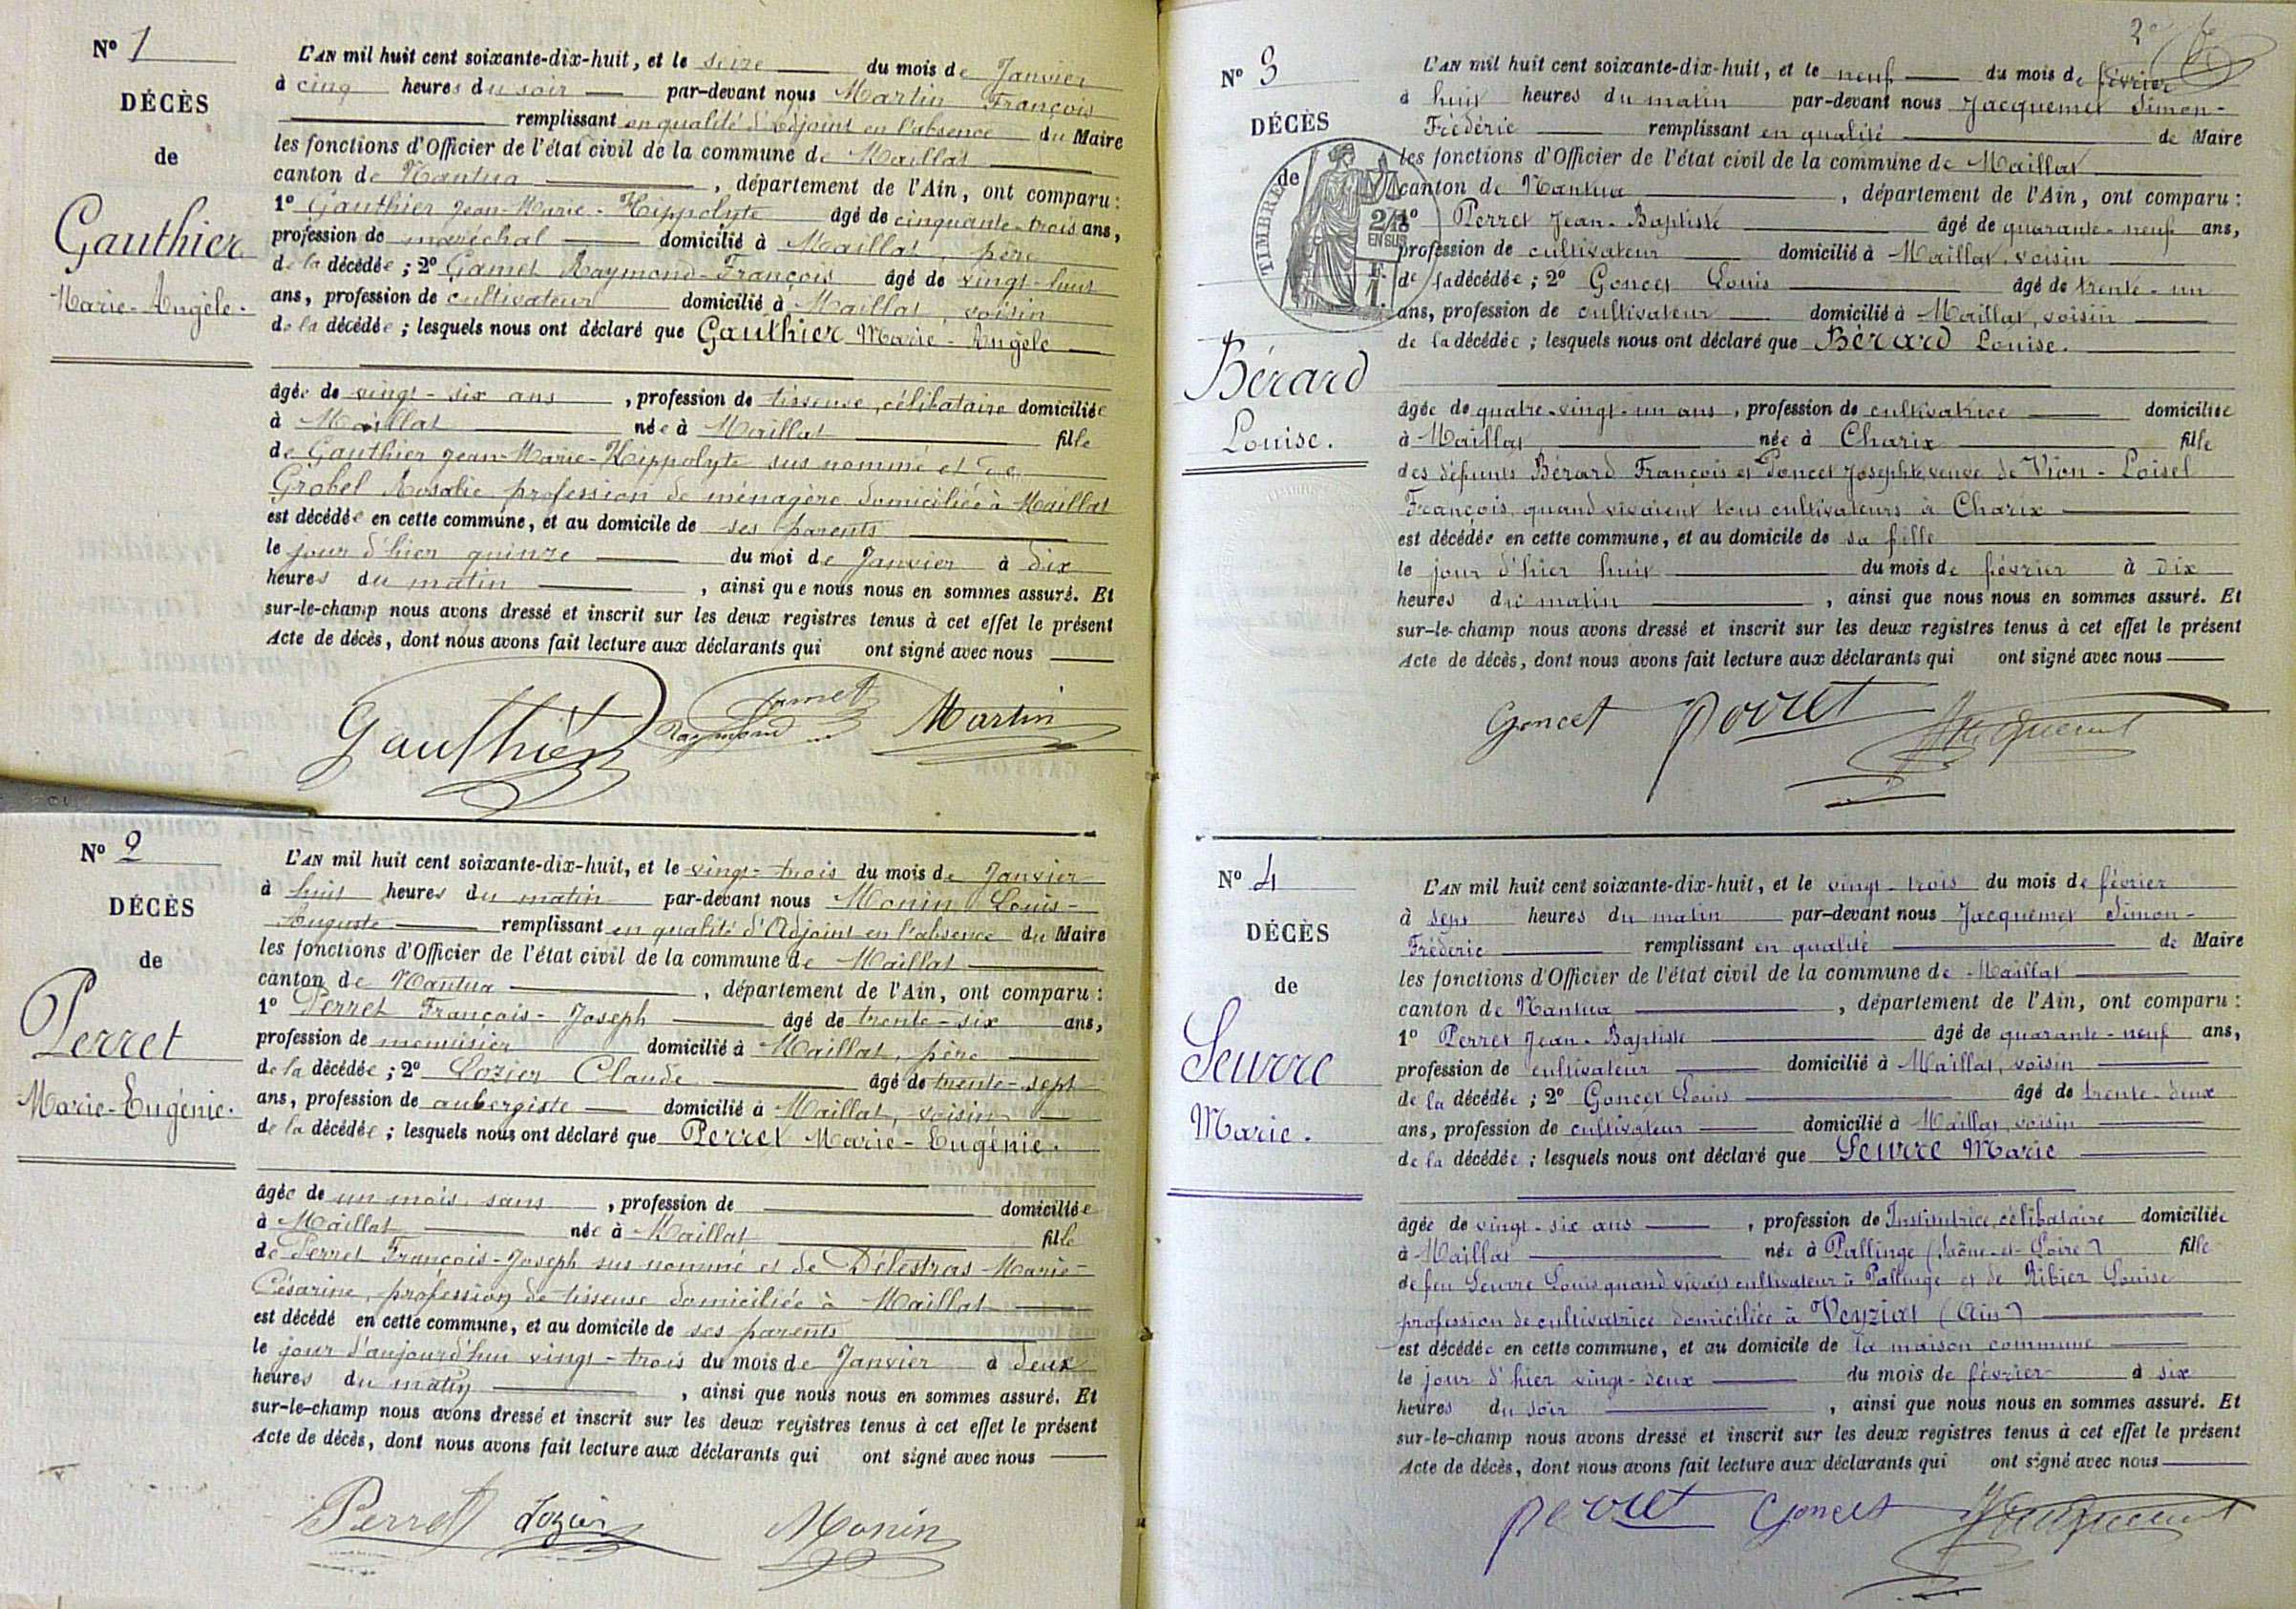 N° 1
DÉCÈS
de
Gauthier
Marie-Angèle.
L'AN mil huit cent soixante-dix-huit, et le seize du mois de Janvier
à cinq heures du soir par-devant nous Martin François
remplissant en qualité d'Adjoint en l'absence du Maire
les fonctions d'Officier de l'état civil de la commune de Maillat
canton de Nantua, département de l'Ain, ont comparu :
1° Gauthier Jean-Marie-Hippolyte âgé de cinquante-trois ans,
profession de maréchal domicilié à Maillat, père
de la décédée ; 2° Gamet Raymond-François âgé de vingt-huit
ans, profession de cultivateur domicilié à Maillat, voisin
de la décédée ; lesquels nous ont déclaré que Gauthier Marie-Angèle
âgée de vingt-six ans, profession de tisseuse, célibataire domiciliée
à Maillat née à Maillat fille
de Gauthier Jean-Marie-Hippolyte sus nommé et de
Grobel Rosalie profession de ménagère domiciliée à Maillat
est décédée en cette commune, et au domicile de ses parents
le jour d'hier quinze du moi de Janvier à dix
heures du matin, ainsi que nous nous en sommes assuré. Et
sur-le-champ nous avons dressé et inscrit sur les deux registres tenus à cet effet le présent
Acte de décès, dont nous avons fait lecture aux déclarants qui ont signé avec nous
Gauthier Gamet Raymond Martin
N° 2
DÉCÈS
de
Perret
Marie-Eugénie.
L'AN mil huit cent soixante-dix-huit, et le vingt-trois du mois de Janvier
à huit heures du matin par-devant nous Monin Louis-
Auguste remplissant en qualité d'Adjoint en l'absence du Maire
les fonctions d'Officier de l'état civil de la commune de Maillat
canton de Nantua, département de l'Ain, ont comparu :
1° Perret François-Joseph âgé de trente-six ans,
profession de menuisier domicilié à Maillat, père
de la décédée ; 2° Lozier Claude âgé de trente-sept
ans, profession de aubergiste domicilié à Maillat, voisin
de la décédée ; lesquels nous ont déclaré que Perret Marie-Eugénie.
âgée de un mois, sans, profession de domiciliée
à Maillat née à Maillat fille
de Perret François-Joseph sus nommé et de Délestras Marie-
Césarine, profession de tisseuse domiciliée à Maillat
est décédé en cette commune, et au domicile de ses parents
le jour d'aujourd'hui vingt-trois du mois de Janvier à deux
heures du matin, ainsi que nous nous en sommes assuré. Et
sur-le-champ nous avons dressé et inscrit sur les deux registres tenus à cet effet le présent
Acte de décès, dont nous avons fait lecture aux déclarants qui ont signé avec nous
Perret Lozier Monin
N° 3
DÉCÈS
de
TIMBRE
2/10
EN SUS
F.
1.
Bérard
Louise.
L'AN mil huit cent soixante-dix-huit, et le neuf du mois de février
à huit heures du matin par-devant nous Jacquemet Simon-
Frédéric remplissant en qualité de Maire
les fonctions d'Officier de l'état civil de la commune de Maillat
canton de Nantua, département de l'Ain, ont comparu :
1° Perret Jean-Baptiste âgé de quarante-neuf ans,
profession de cultivateur domicilié à Maillat, voisin
de la décédée ; 2° Goncet Louis âgé de trente-un
ans, profession de cultivateur domicilié à Maillat, voisin
de la décédée ; lesquels nous ont déclaré que Bérard Louise.
âgée de quatre-vingt-un ans, profession de cultivatrice domiciliée
à Maillat née à Charix fille
des défunts Bérard François et Poncet Josephte, veuve de Vion-Loisel
François, quand vivaient tous cultivateurs à Charix
est décédée en cette commune, et au domicile de sa fille
le jour d'hier huit du mois de février à dix
heures du matin, ainsi que nous nous en sommes assuré. Et
sur-le-champ nous avons dressé et inscrit sur les deux registres tenus à cet effet le présent
Acte de décès, dont nous avons fait lecture aux déclarants qui ont signé avec nous
Goncet Perret Jacquemet
N° 4
DÉCÈS
de
Seurre
Marie.
L'AN mil huit cent soixante-dix-huit, et le vingt-trois du mois de février
à sept heures du matin par-devant nous Jacquemet Simon-
Frédéric remplissant en qualité de Maire
les fonctions d'Officier de l'état civil de la commune de Maillat
canton de Nantua, département de l'Ain, ont comparu :
1° Perret Jean-Baptiste âgé de quarante-neuf ans,
profession de cultivateur domicilié à Maillat, voisin
de la décédée ; 2° Goncet Louis âgé de trente-deux
ans, profession de cultivateur domicilié à Maillat, voisin
de la décédée ; lesquels nous ont déclaré que Seurre Marie
âgée de vingt-six ans, profession de Institutrice, célibataire domiciliée
à Maillat née à Pallinge (Saône-et-Loire) fille
de feu Seurre Louis quand vivait cultivateur à Pallinge et de Ribier Louise
profession de cultivatrice domiciliée à Veyziat (Ain)
est décédée en cette commune, et au domicile de la maison commune
le jour d'hier vingt-deux du mois de février à six
heures du soir, ainsi que nous nous en sommes assuré. Et
sur-le-champ nous avons dressé et inscrit sur les deux registres tenus à cet effet le présent
Acte de décès, dont nous avons fait lecture aux déclarants qui ont signé avec nous
Perret Goncet Jacquemet